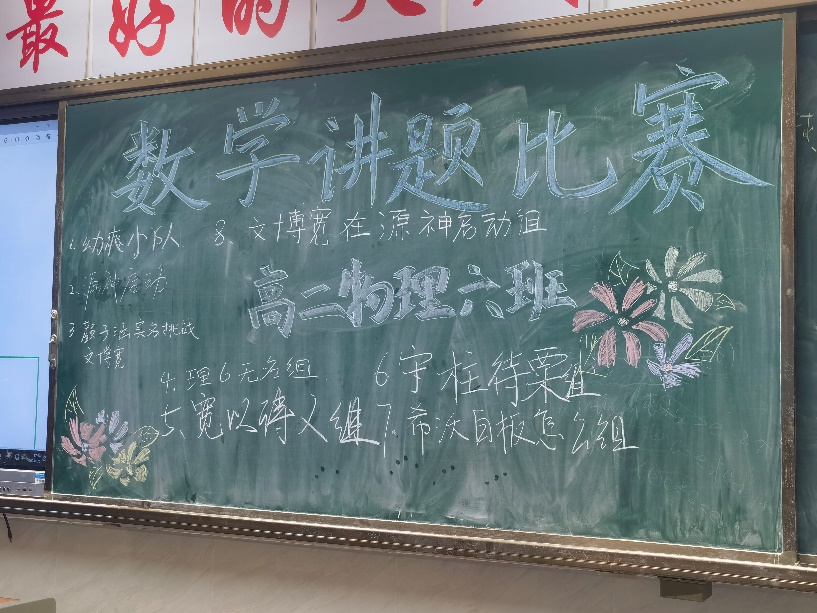 最好的
数学讲题比赛
1. 幼爽小队
8、文博宽在源神启动组
2. 原神启动
高二物理六班
3. 教于法莫名挑战
文博宽
4. 理6无名组
6 守柱待栗组
五、宽以砖人组
7. 希沃白板怎么组